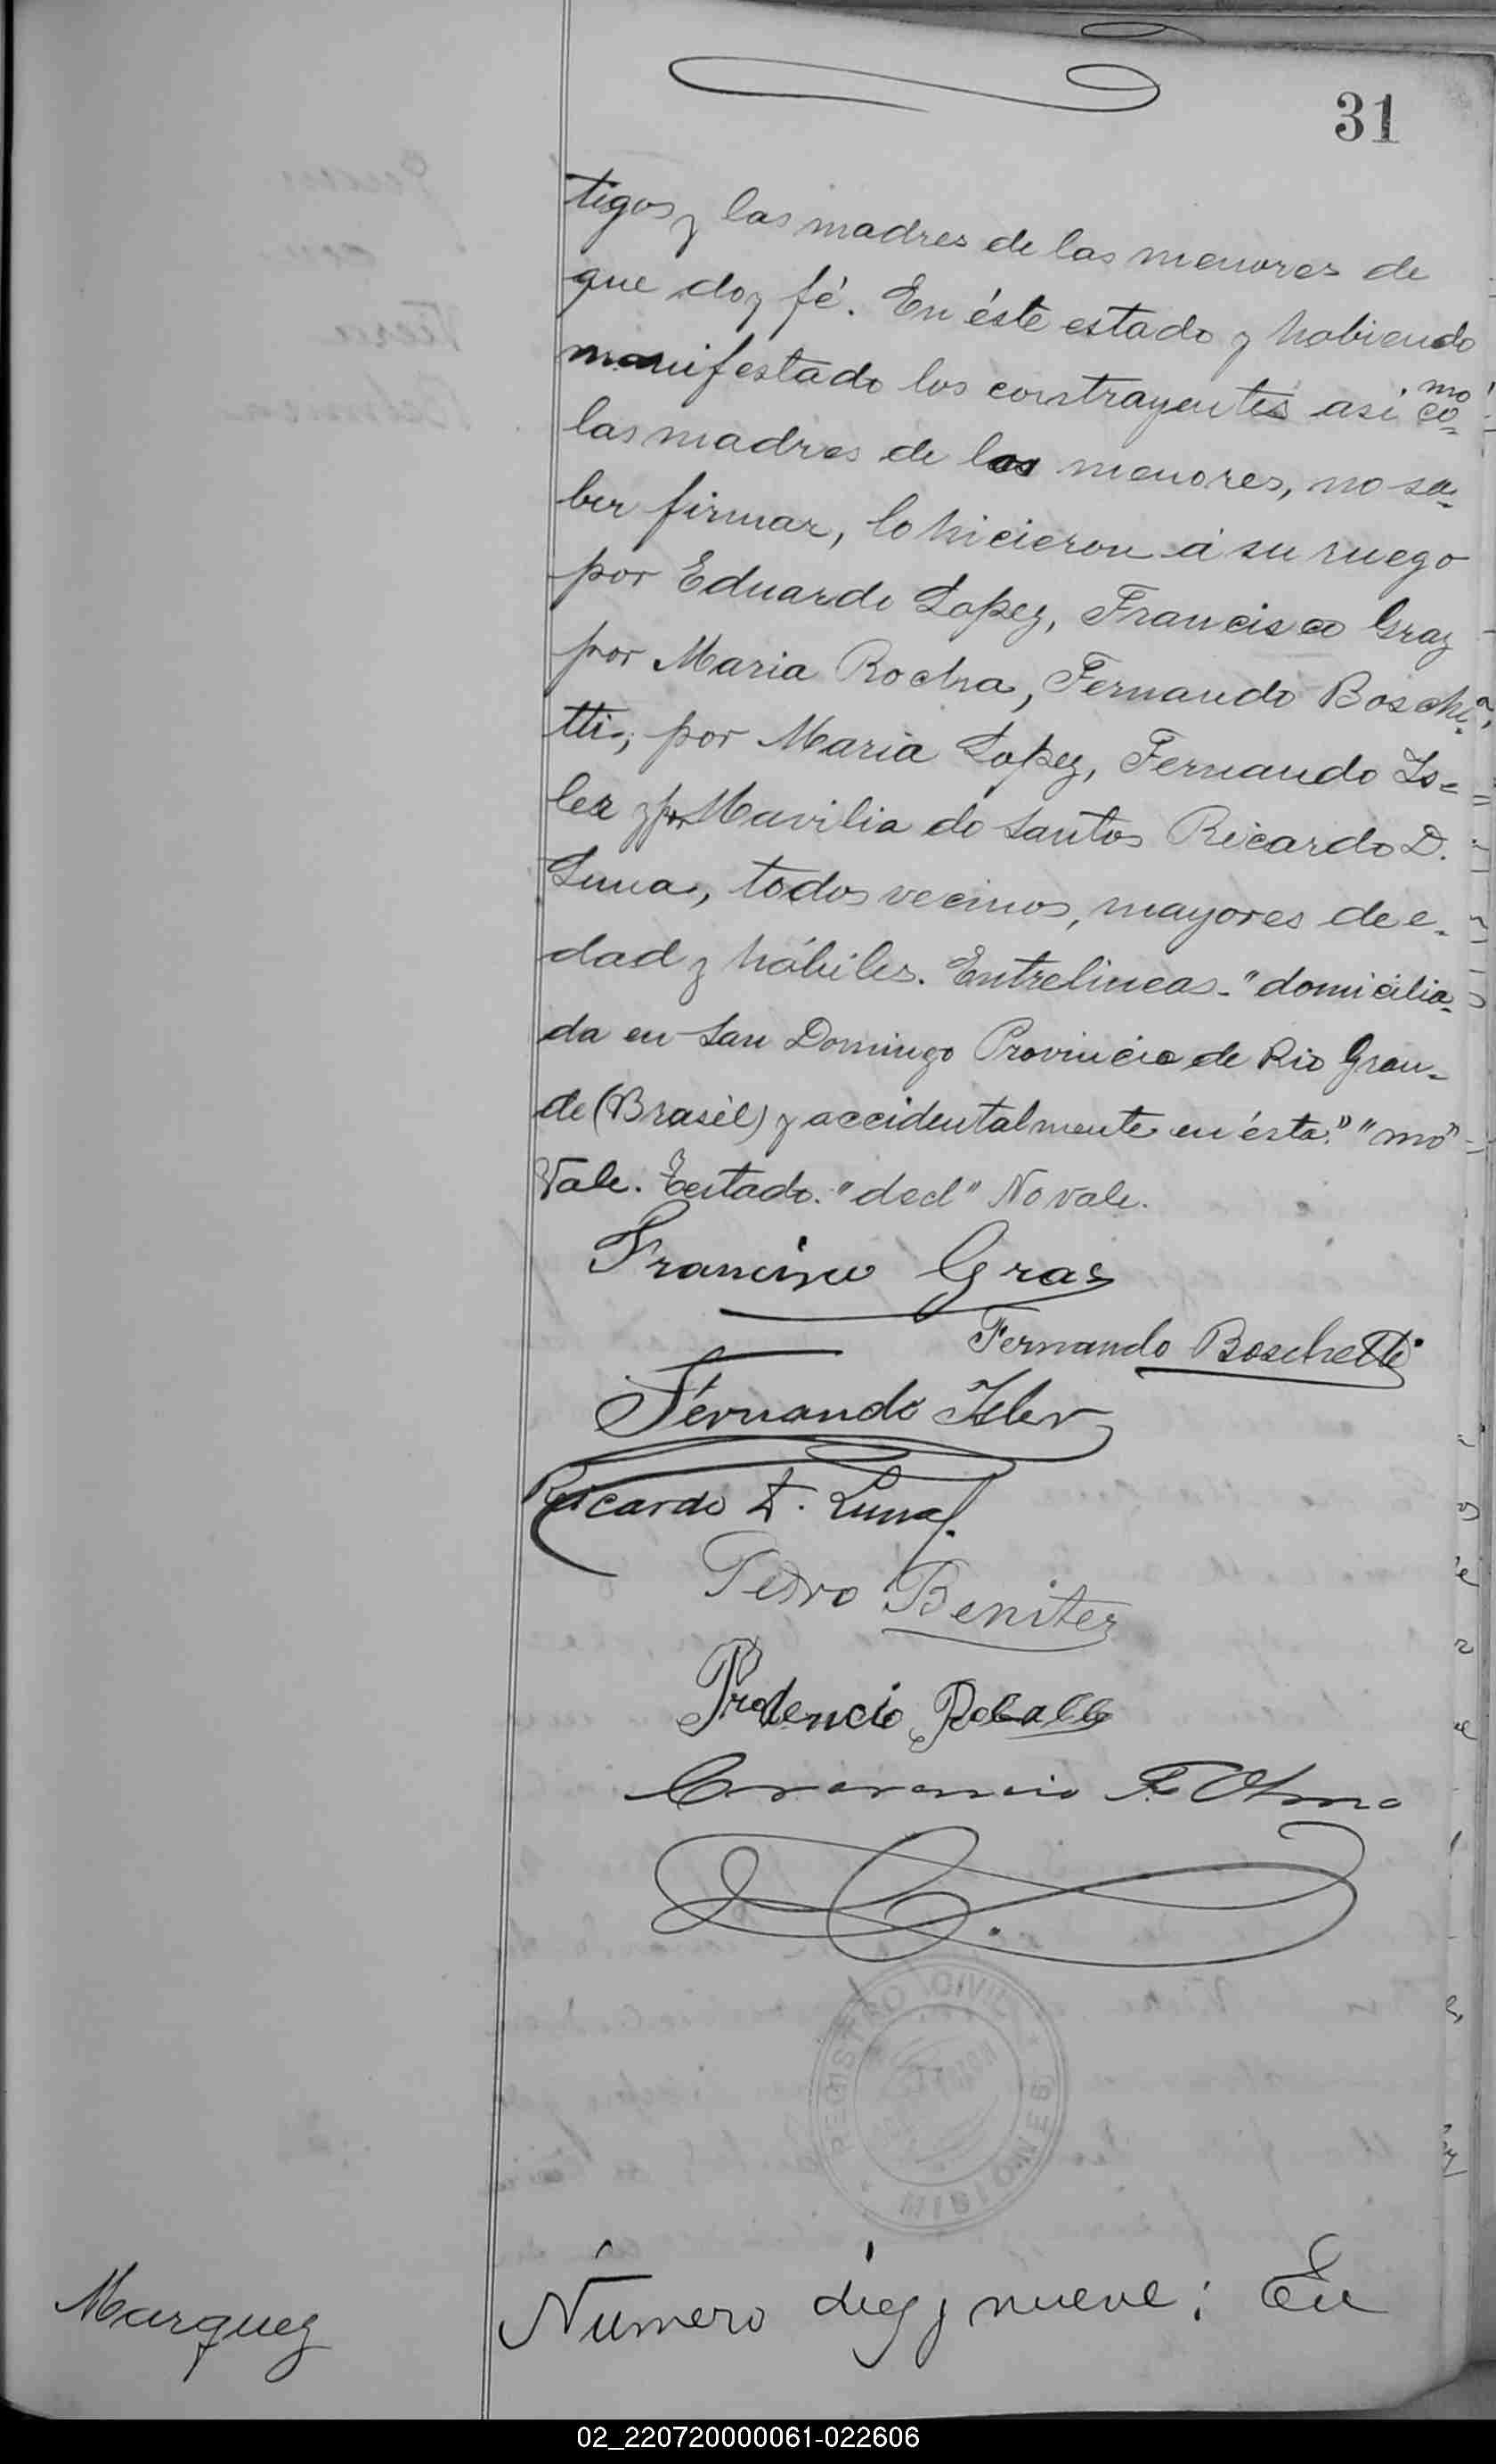 31
tigos y las madres de las menores de
que doy fé. En éste estado y habiendo
manifestado los contrayentes asi co=
mo
las madres de las menores, no sa=
ber firmar, lo hicieron á su ruego
por Eduardo Lopez, Francisco Graz
por Maria Rocha, Fernando Bosche=
tti, por Maria Lopez, Fernando Is=
ler y por Mavilia do Santos Ricardo D.
Luna, todos vecinos, mayores de e=
dad y hábiles. Entrelineas-"domicilia=
da en San Domingo Provincia de Rio Gran=
de (Brasil) y accidentalmente en ésta." "mo"
Vale. Testado. "ded" No vale.
Francisco Gras
Fernando Boschetti
Fernando Isler
Ricardo D. Luna
Pedro Benitez
Prudencio
REGISTRO CIVIL
MISIONES
Marquez
Número diez y nueve: En
02_220720000061-022606